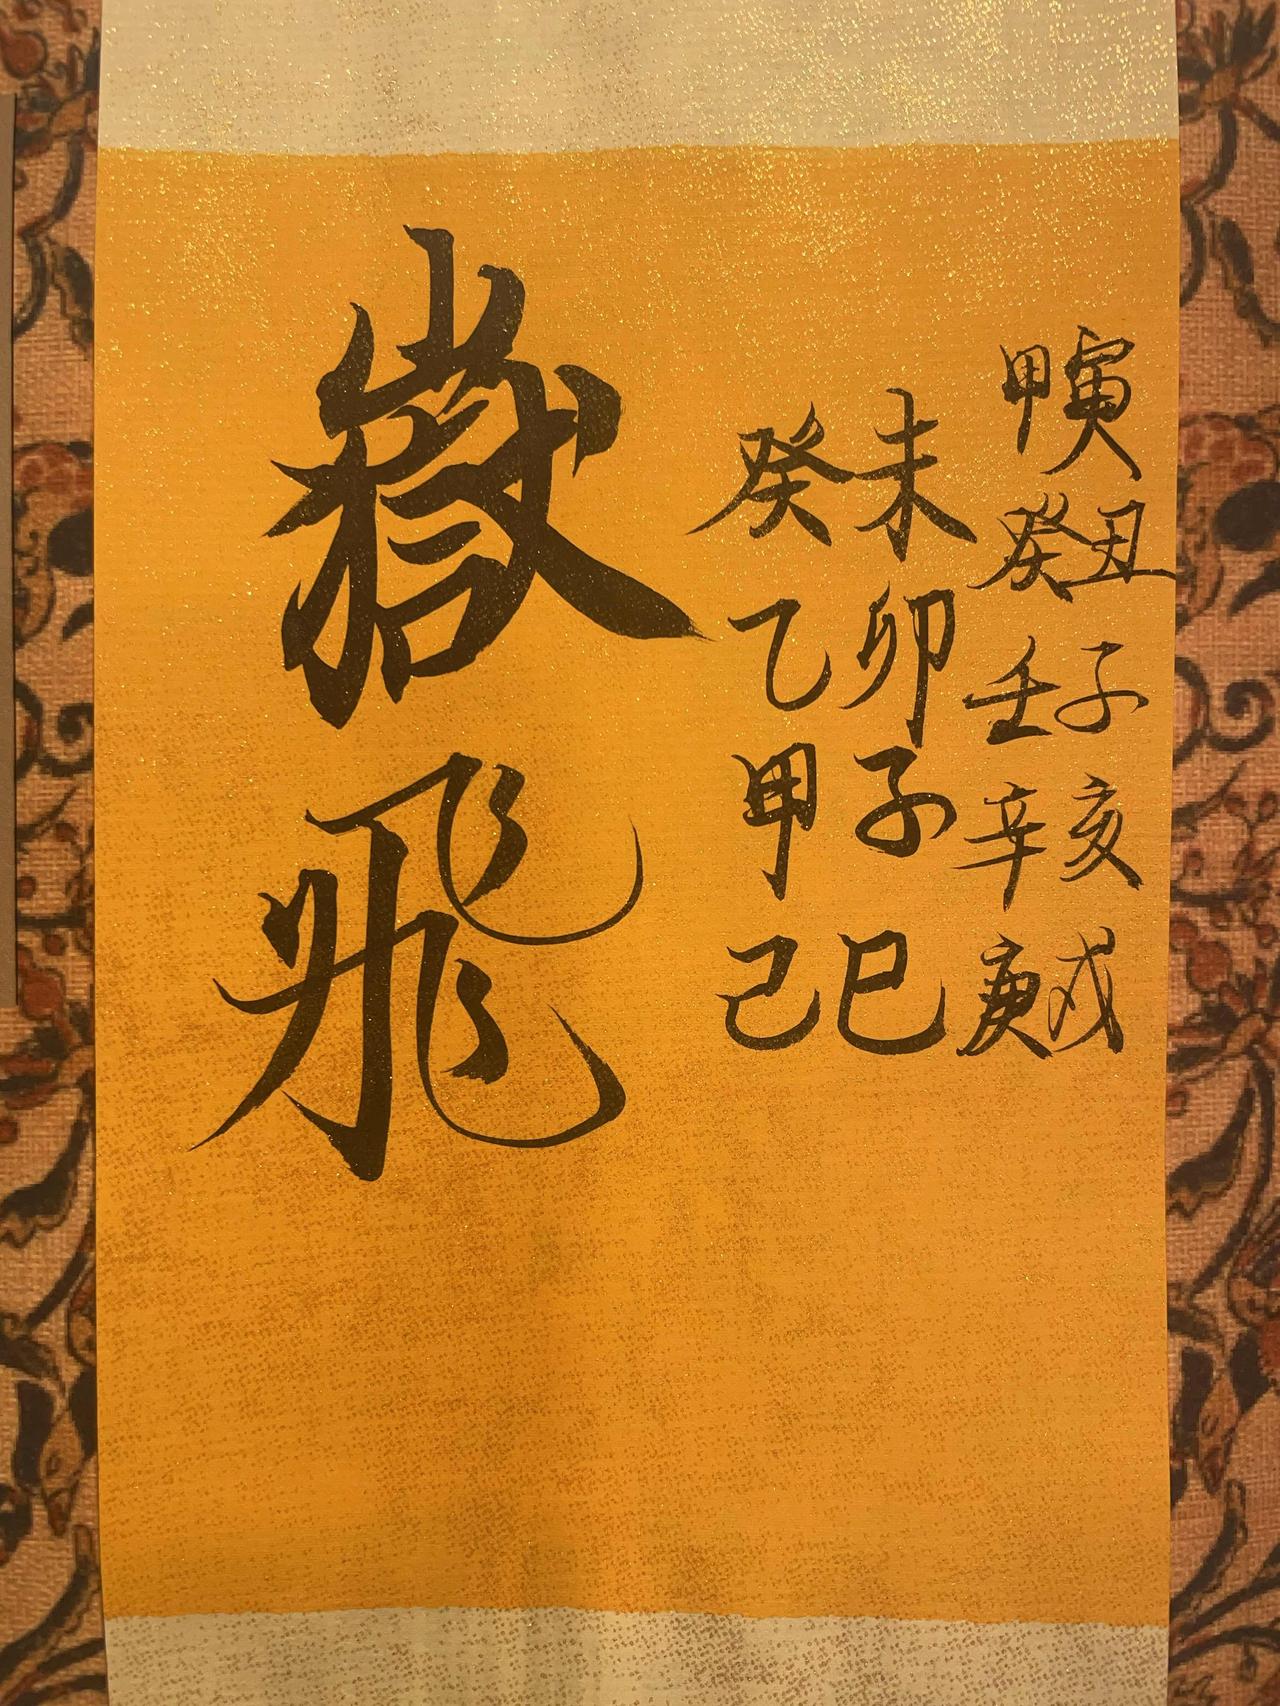 嶽飛
癸未
乙卯
甲子
己巳
甲寅
癸丑
壬子
辛亥
庚戌